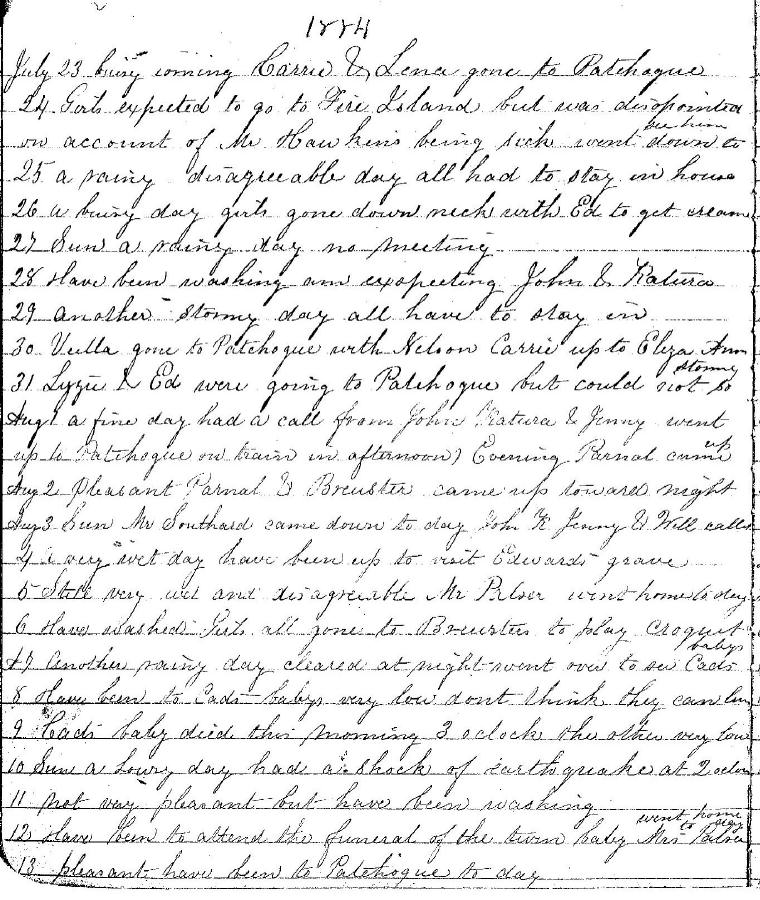 1884
July 23 buisy ironing Carrie & Lena gone to Patchogue
24 Girls expected to go to Fire Island but was disopointed
on account of Mr Hawkins being sick went down to
see him
25 a rainy disagreeable day all had to stay in house
26 a buisy day girls gone down neck with Ed to get cream
27 Sun a rainy day no meeting
28 Have been washing am exspecting John & Katura
29 another stormy day all have to stay in
30 Vella gone to Patchogue with Nelson Carrie up to Eliza Ann
31 Lyzie & Ed were going to Patchogue but could not so
stormy
Aug 1 a fine day had a call from John Katura & Jenny went
up to Patchogue on train in afternoon) Evening Parnal came
up
Aug 2 pleasant Parnal & Breuster came up toward night
Aug 3 Sun Mr Southard came down to day John K Jenny & Will calls
4 a very wet day have been up to visit Edwards grave
5 Still very wet and disagreeable Mr Pelser went home to day
6 Have washed Girls all gone to Breusters to play Croquet
7 Another rainy day cleared at night went over to see Cads
babys
8 Have been to Cads babys very low dont think they can live
9 Cads baby died this morning 3 oclock the other very low
10 Sun a Lowry day had a shock of earthquake at 2 oclock
11 not very pleasant but have been washing
12 Have been to attend the funeral of the twin baby Mrs Pelser
went home
to day
13 pleasant have been to Patchogue to day